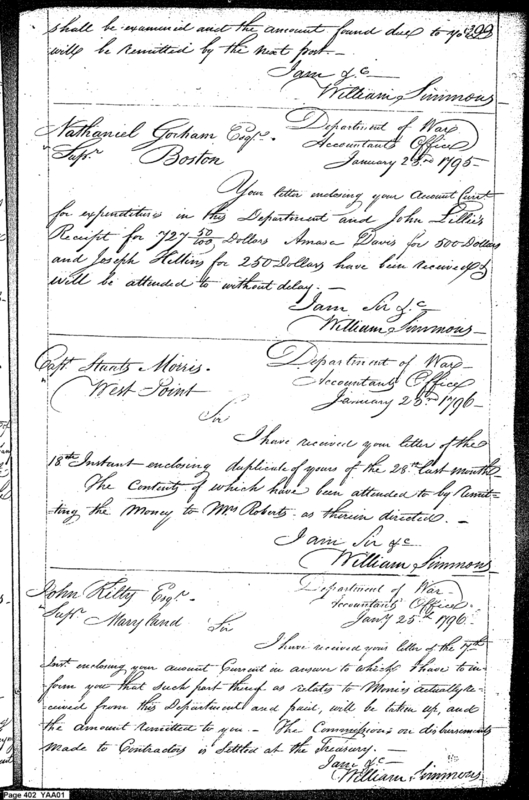 299
shall be examined and the amount found due to you
will be remitted by the next post —
I am &c
William Simmons
Nathaniel Gorham Esqr.
Supr. Boston
Department of War
Accountants Office
January 23rd 1795 —
Your letter enclosing your Account Currt
for expenditures in this Department and John Lillie's
Receipt for 727 50/100 Dollars Amasa Davis for 500 Dollars
and Joseph for 250 Dollars have been received &
will be attended to without delay. —
I am Sir &c
William Simmons
Capt. Staats Morris.
West Point
Department of War
Accountants Office
January 23rd 1796 —
Sir
I have received your letter of the
18th Instant enclosing duplicate of yours of the 28th last month
The Contents of which have been attended to by remit-
ting the Money to Mrs Roberts as therein directed. —
I am Sir &c
William Simmons
John Kilty Esqr.
Supr. Maryland
Department of War
Accountants Office
Jany 25th 1796
Sir
I have received your letter of the 7th
Inst. enclosing your amount Current in answer to which I have to in
form you that such part thereof as relates to Monies actually re-
ceived from this Department and paid, will be taken up, and
the amount remitted to you — The Commissions on disbursements
made to Contractors is settled at the Treasury. —
I am &c —
William Simmons
Page 402 YAA01